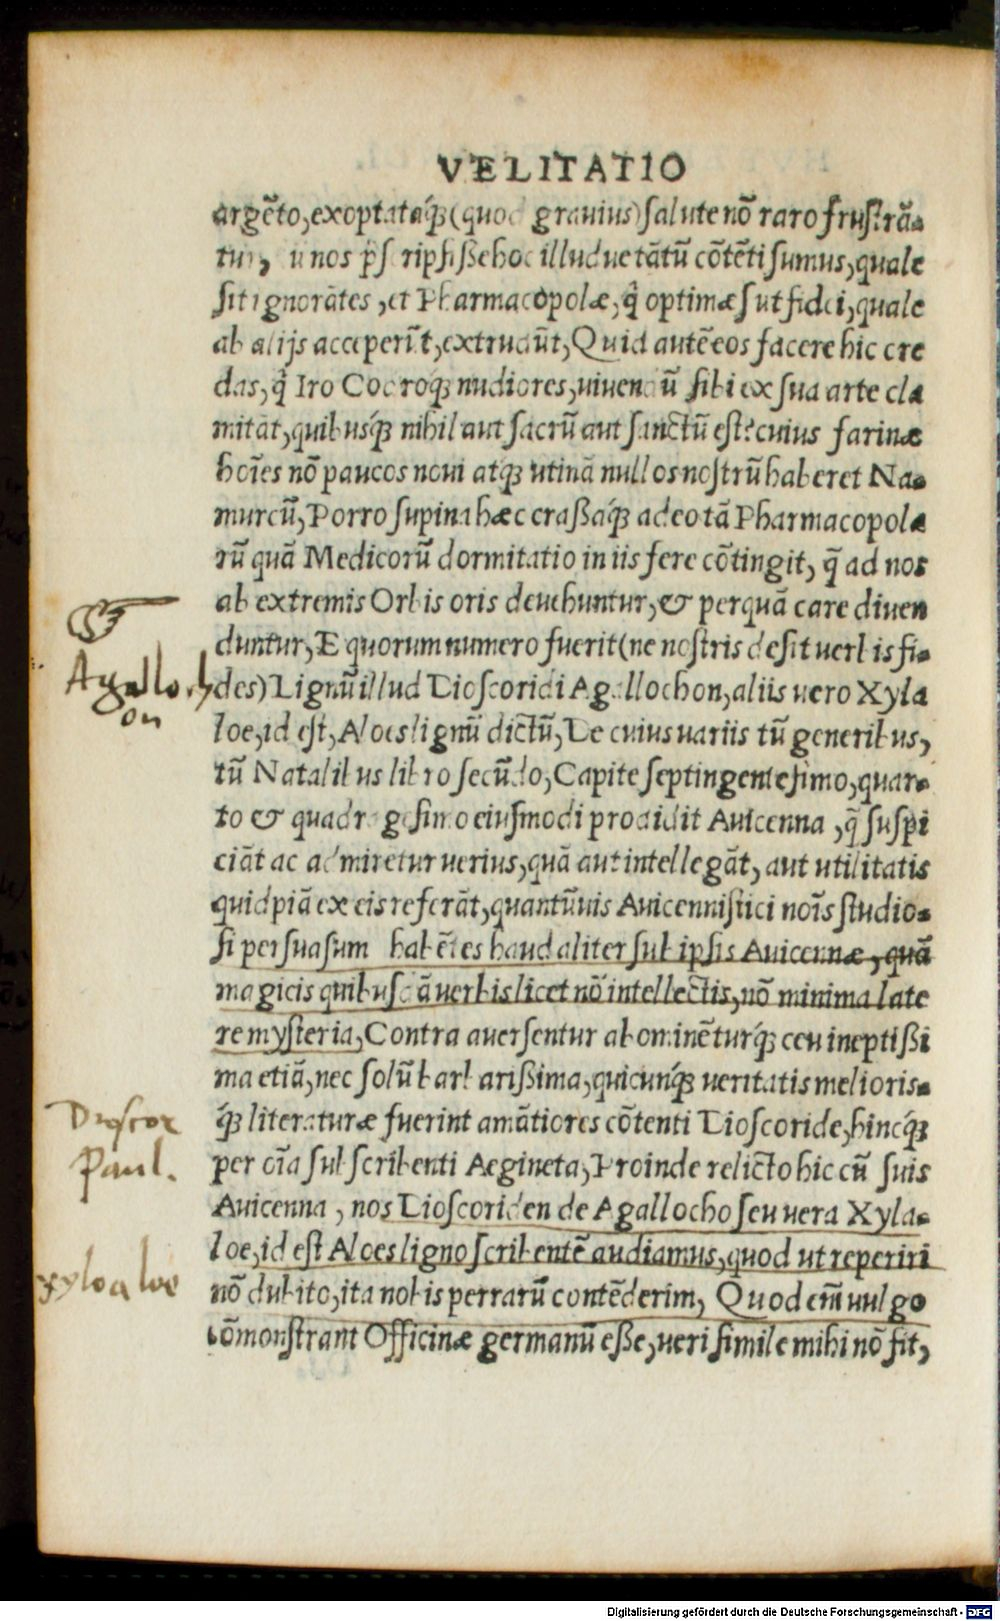 VELITATIO
argēto, exoptataq́; (quod grauius) salute nō raro frustrā-
tur, nos p̄scripsisse hoc illud ue tātū cōtēti sumus, quale
sit ignorātes, et Pharmacopolæ, q̄ optimæ sūt fidei, quale
ab alijs acceperīt, extrudūt, Quid autē eos facere hic cre
das, q̄ Iro Codroq́; nudiores, uiuendū sibi ex sua arte cla
mitāt, quibusq́; nihil aut sacrū aut sanctū est? cuius farinæ
hoīes nō paucos noui atq; utinā nullos nostrū haberet Na-
murcū, Porro supina hæc crassaq́; adeo tā Pharmacopola
rū quā Medicorū dormitatio in iis fere cōtingit, q̄ ad nos
ab extremis Orbis oris deuehuntur, & perquā care diuen
duntur, E quorum numero fuerit (ne nostris desit uerbis fi-
des) Lignū illud Dioscoridi Agallochon, aliis uero Xyla
Agalloch
on
loe, id est, Aloes lignū dictū, De cuius uariis tū generibus,
tū Natalibus libro secūdo, Capite septingentesimo, quar-
to & quadragesimo eiusmodi prodidit Auicenna, q̄ suspi
ciāt ac admiretur uerius, quā aut intellegāt, aut utilitatis
quidpiā ex eis referāt, quantūuis Auicennistici noīs studio-
si persuasum habētes haud aliter sub ipsis Auicennæ, quā
magicis quibusdā uerbis licet nō intellectis, nō minima late
re mysteria, Contra auersentur abominēturq́; ceu ineptissi
ma etiā, nec solū barbarissima, quicunq́; ueritatis melioris-
q́; literaturæ fuerint amātiores cōtenti Dioscoride, hincq́;
Dioscor
Paul.
per oīa subscribenti Aegineta, Proinde relicto hic cū suis
Auicenna, nos Dioscoriden de Agallocho seu uera Xyla-
loe, id est Aloes ligno scribentē audiamus, quod ut reperiri
xyloaloe
nō dubito, ita nobis perrarū contēderim, Quod em̄ uulgo
cōmonstrant Officinæ germanū esse, ueri simile mihi nō fit,
Digitalisierung gefördert durch die Deutsche Forschungsgemeinschaft - DFG